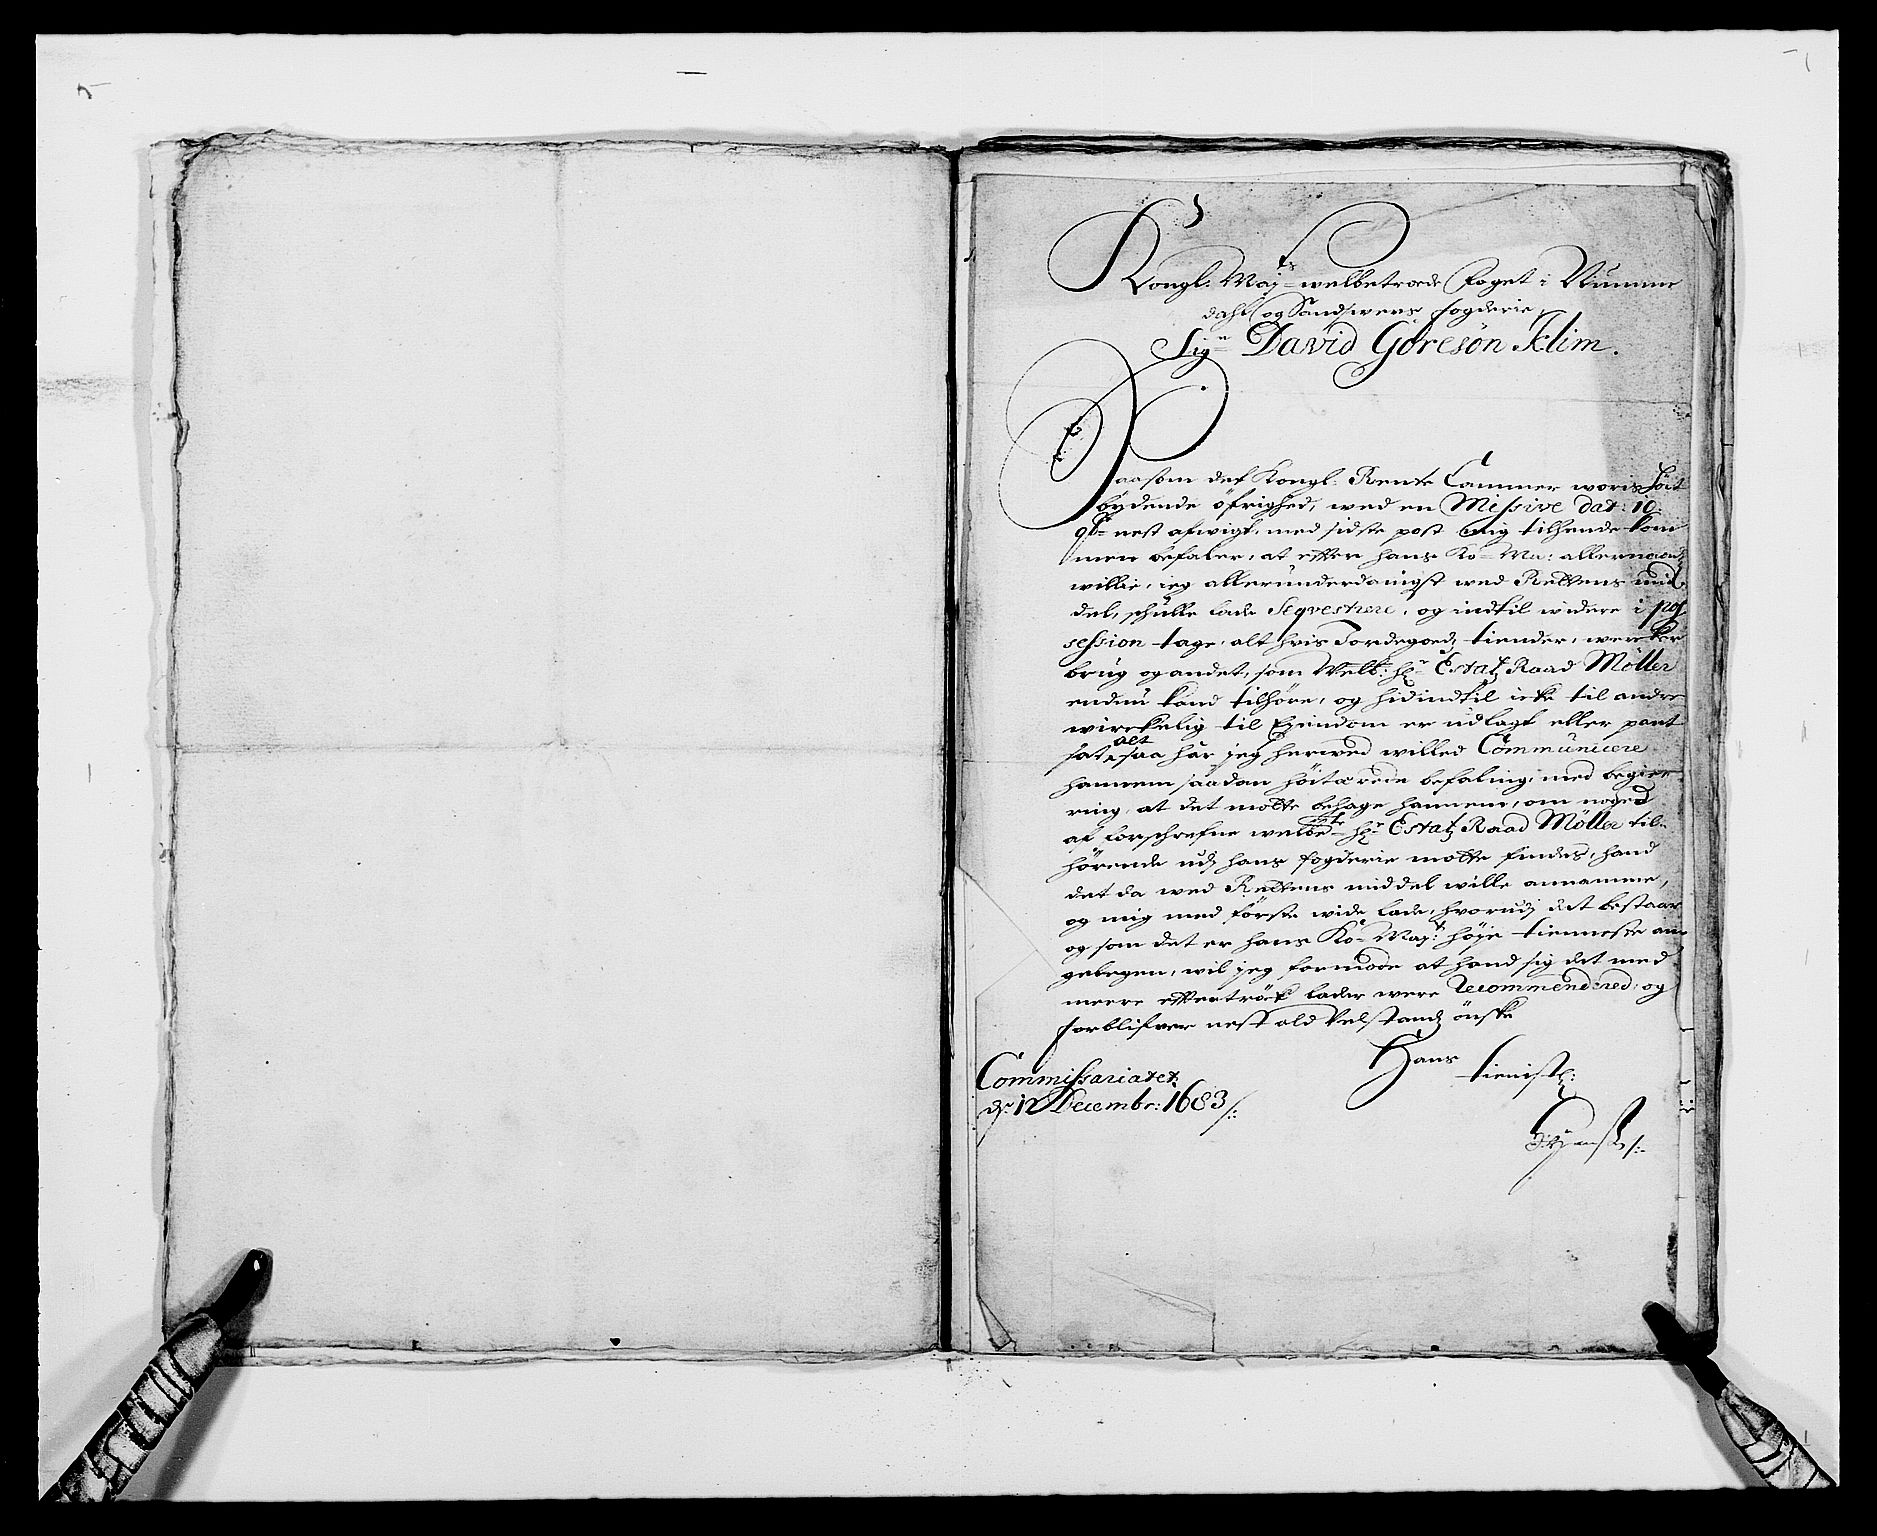 Kongl: Maj:ts welbetroede Foget i Numme
dahl og Sandswers fogderie,
Sig:n David Göresön Klim.
Saasom det Kongl: Rente Cammer woris höit
bydende öfrighed, wed en Missive dat: 10
9br nest afwigt, med sidste post mig tilhende kom
men befaler, at efter hans Ko: Ma: allernaad:
willie, jeg allerunderdanigst wed Rettens mid
del, schulle lade Seqvestrere, og indtil widere i pos
session tage, alt hvis Jordegoed, tiender, wercker
brug og andet, som Welb: Hr Estatz Raad Möller
endnu kand tilhöre, og hidindtil icke til andre
wirckelig til Eyendom er udlagt eller pant
sat, alt saa har jeg herwed willed Communicere
hannem saadan höitærede befaling, med begier
ring, at det motte behage hannem, om noged
af forschrefne welbete Hr Estatz Raad Möller til
hörende udj hans fogderie motte findes, hand
det da wed Rettens middel wille annamme,
og mig med förste wide lade, hvorudj det bestaar
og som det er hans Ko: May:ts höje tienneste an
gelegen, wil jeg formode at hand sig det med
meere eftertröck lader were recommendered, og
forblifver nest ald Velstandz önske
Hans
tienist:
Commissariatet
d: 12 Decembr: 1683